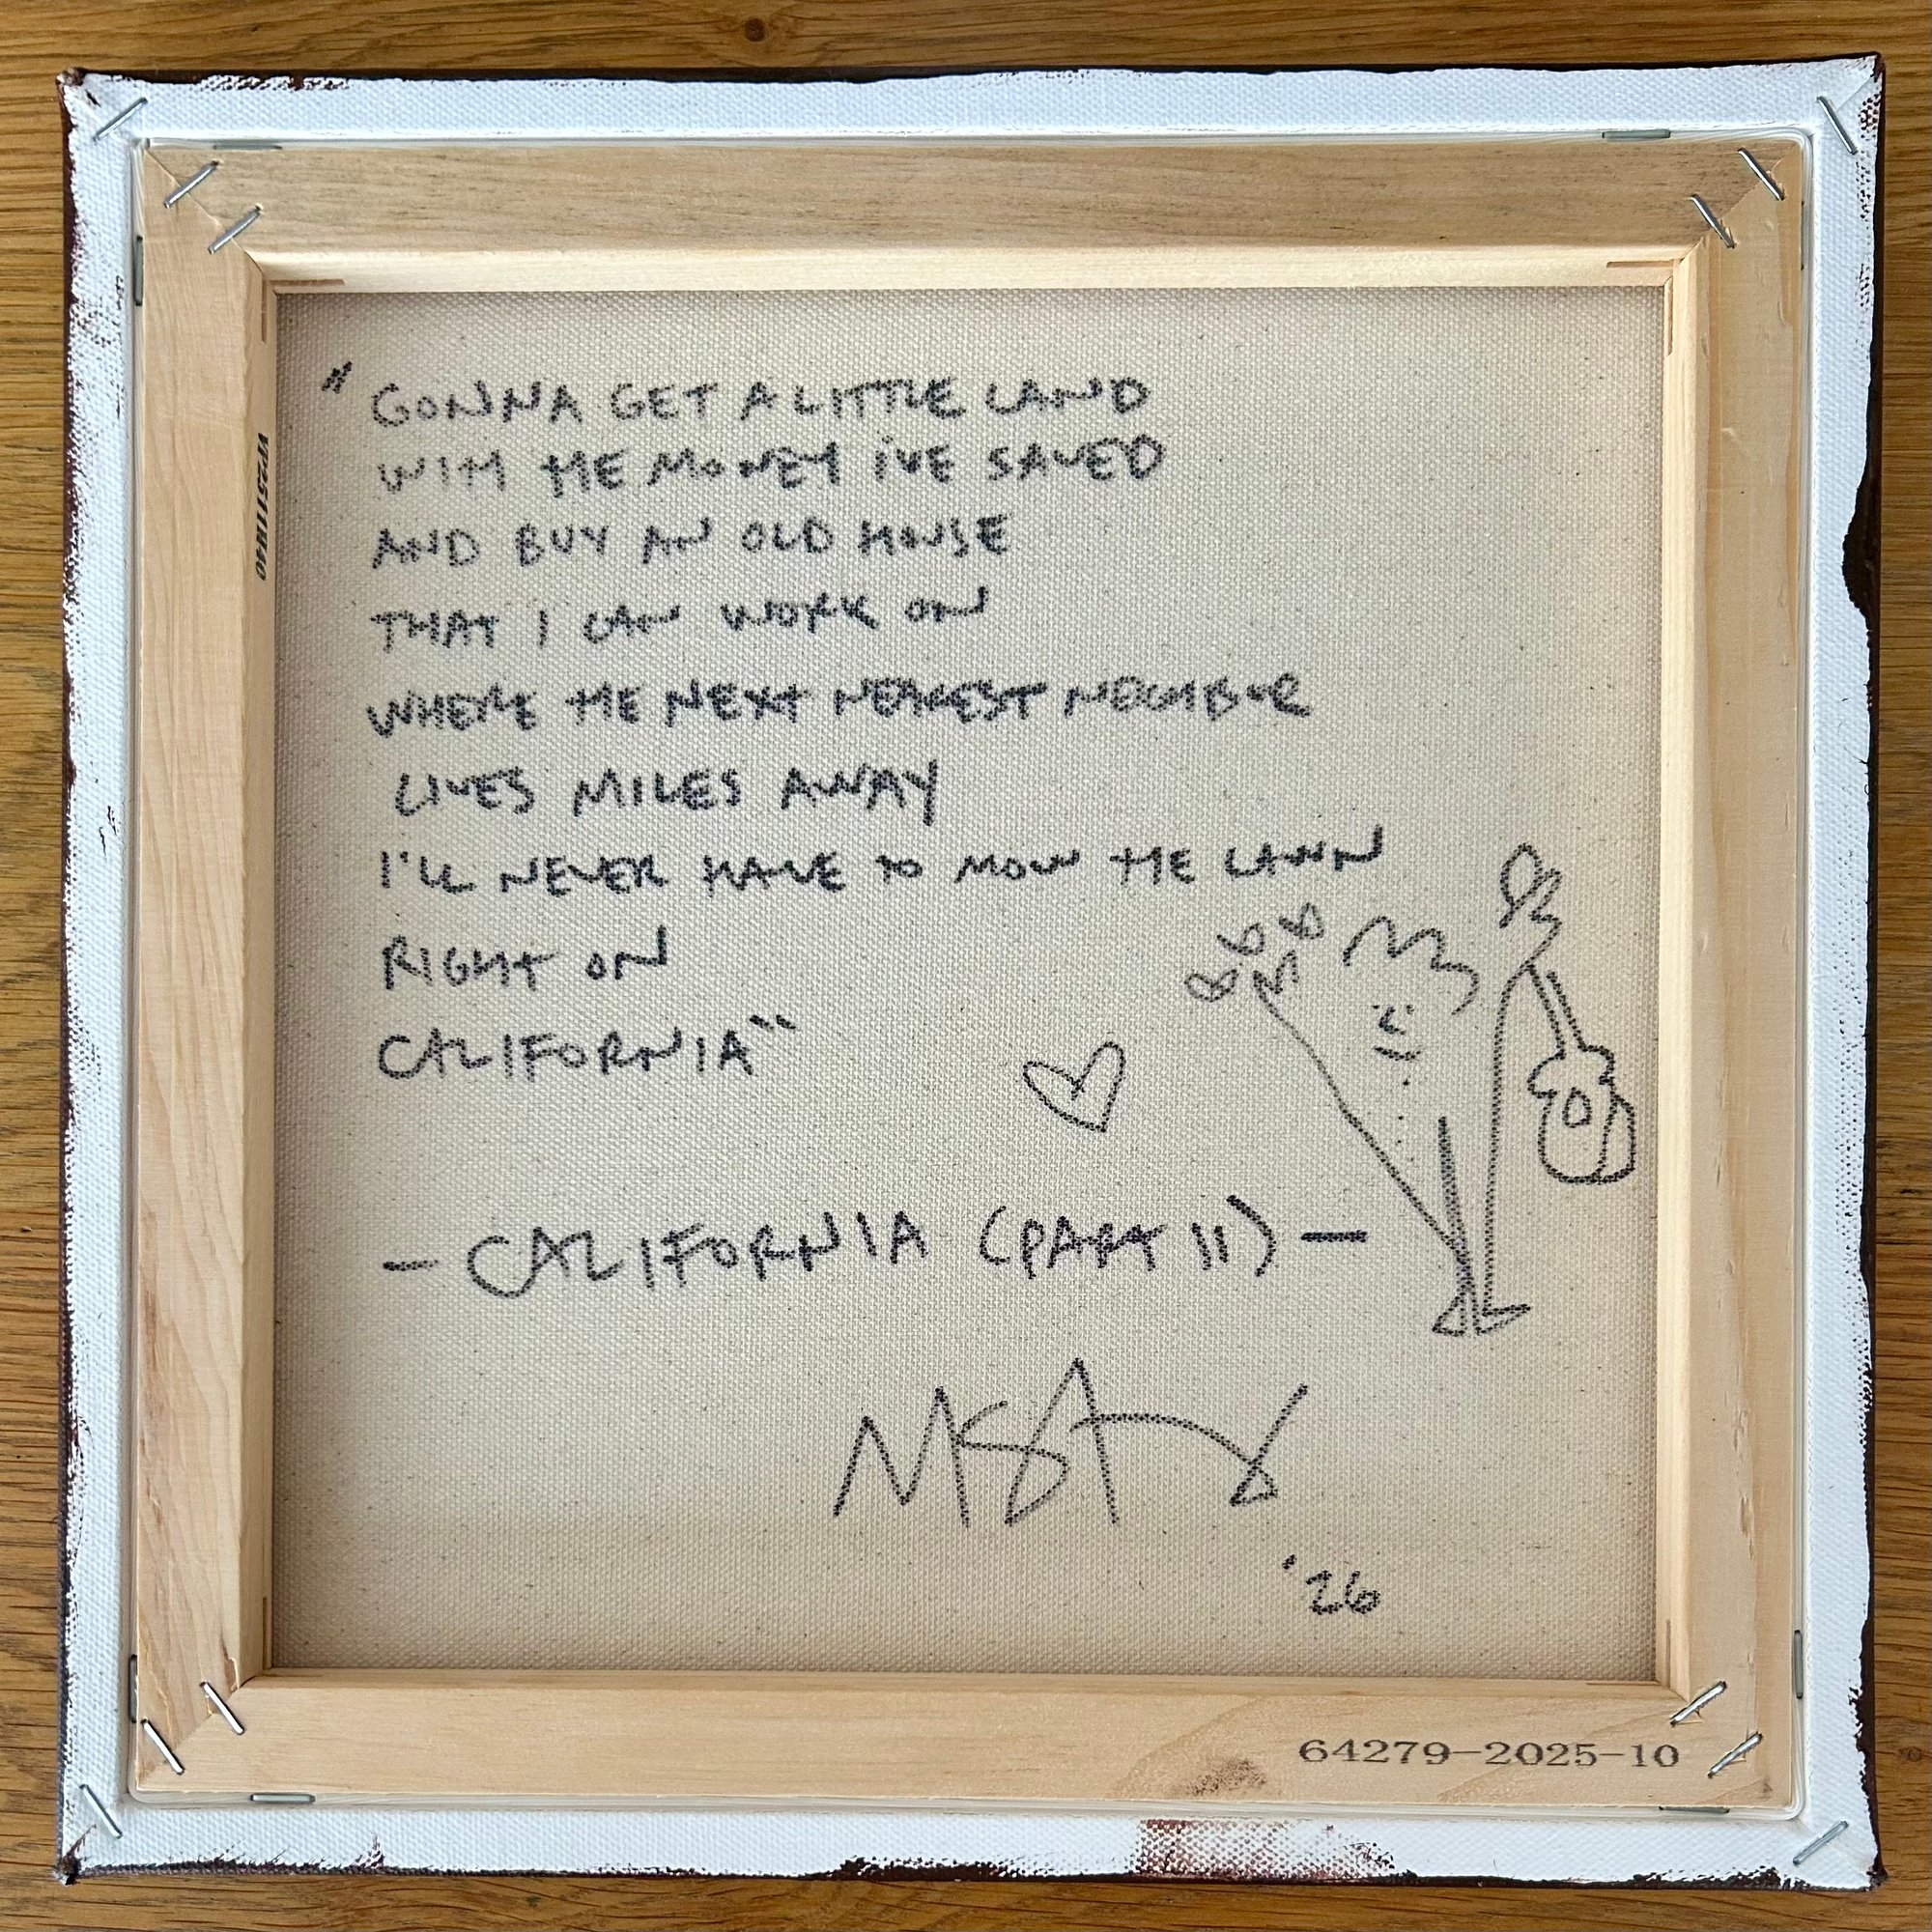 "GONNA GET A LITTLE LAND
WITH THE MONEY I'VE SAVED
AND BUY AN OLD HOUSE
THAT I CAN WORK ON
WHERE THE NEXT NEAREST NEIGHBOR
LIVES MILES AWAY
I'LL NEVER HAVE TO MOW THE LAWN
RIGHT ON
CALIFORNIA"
- CALIFORNIA (PART II) -
'26
64279-2025-10